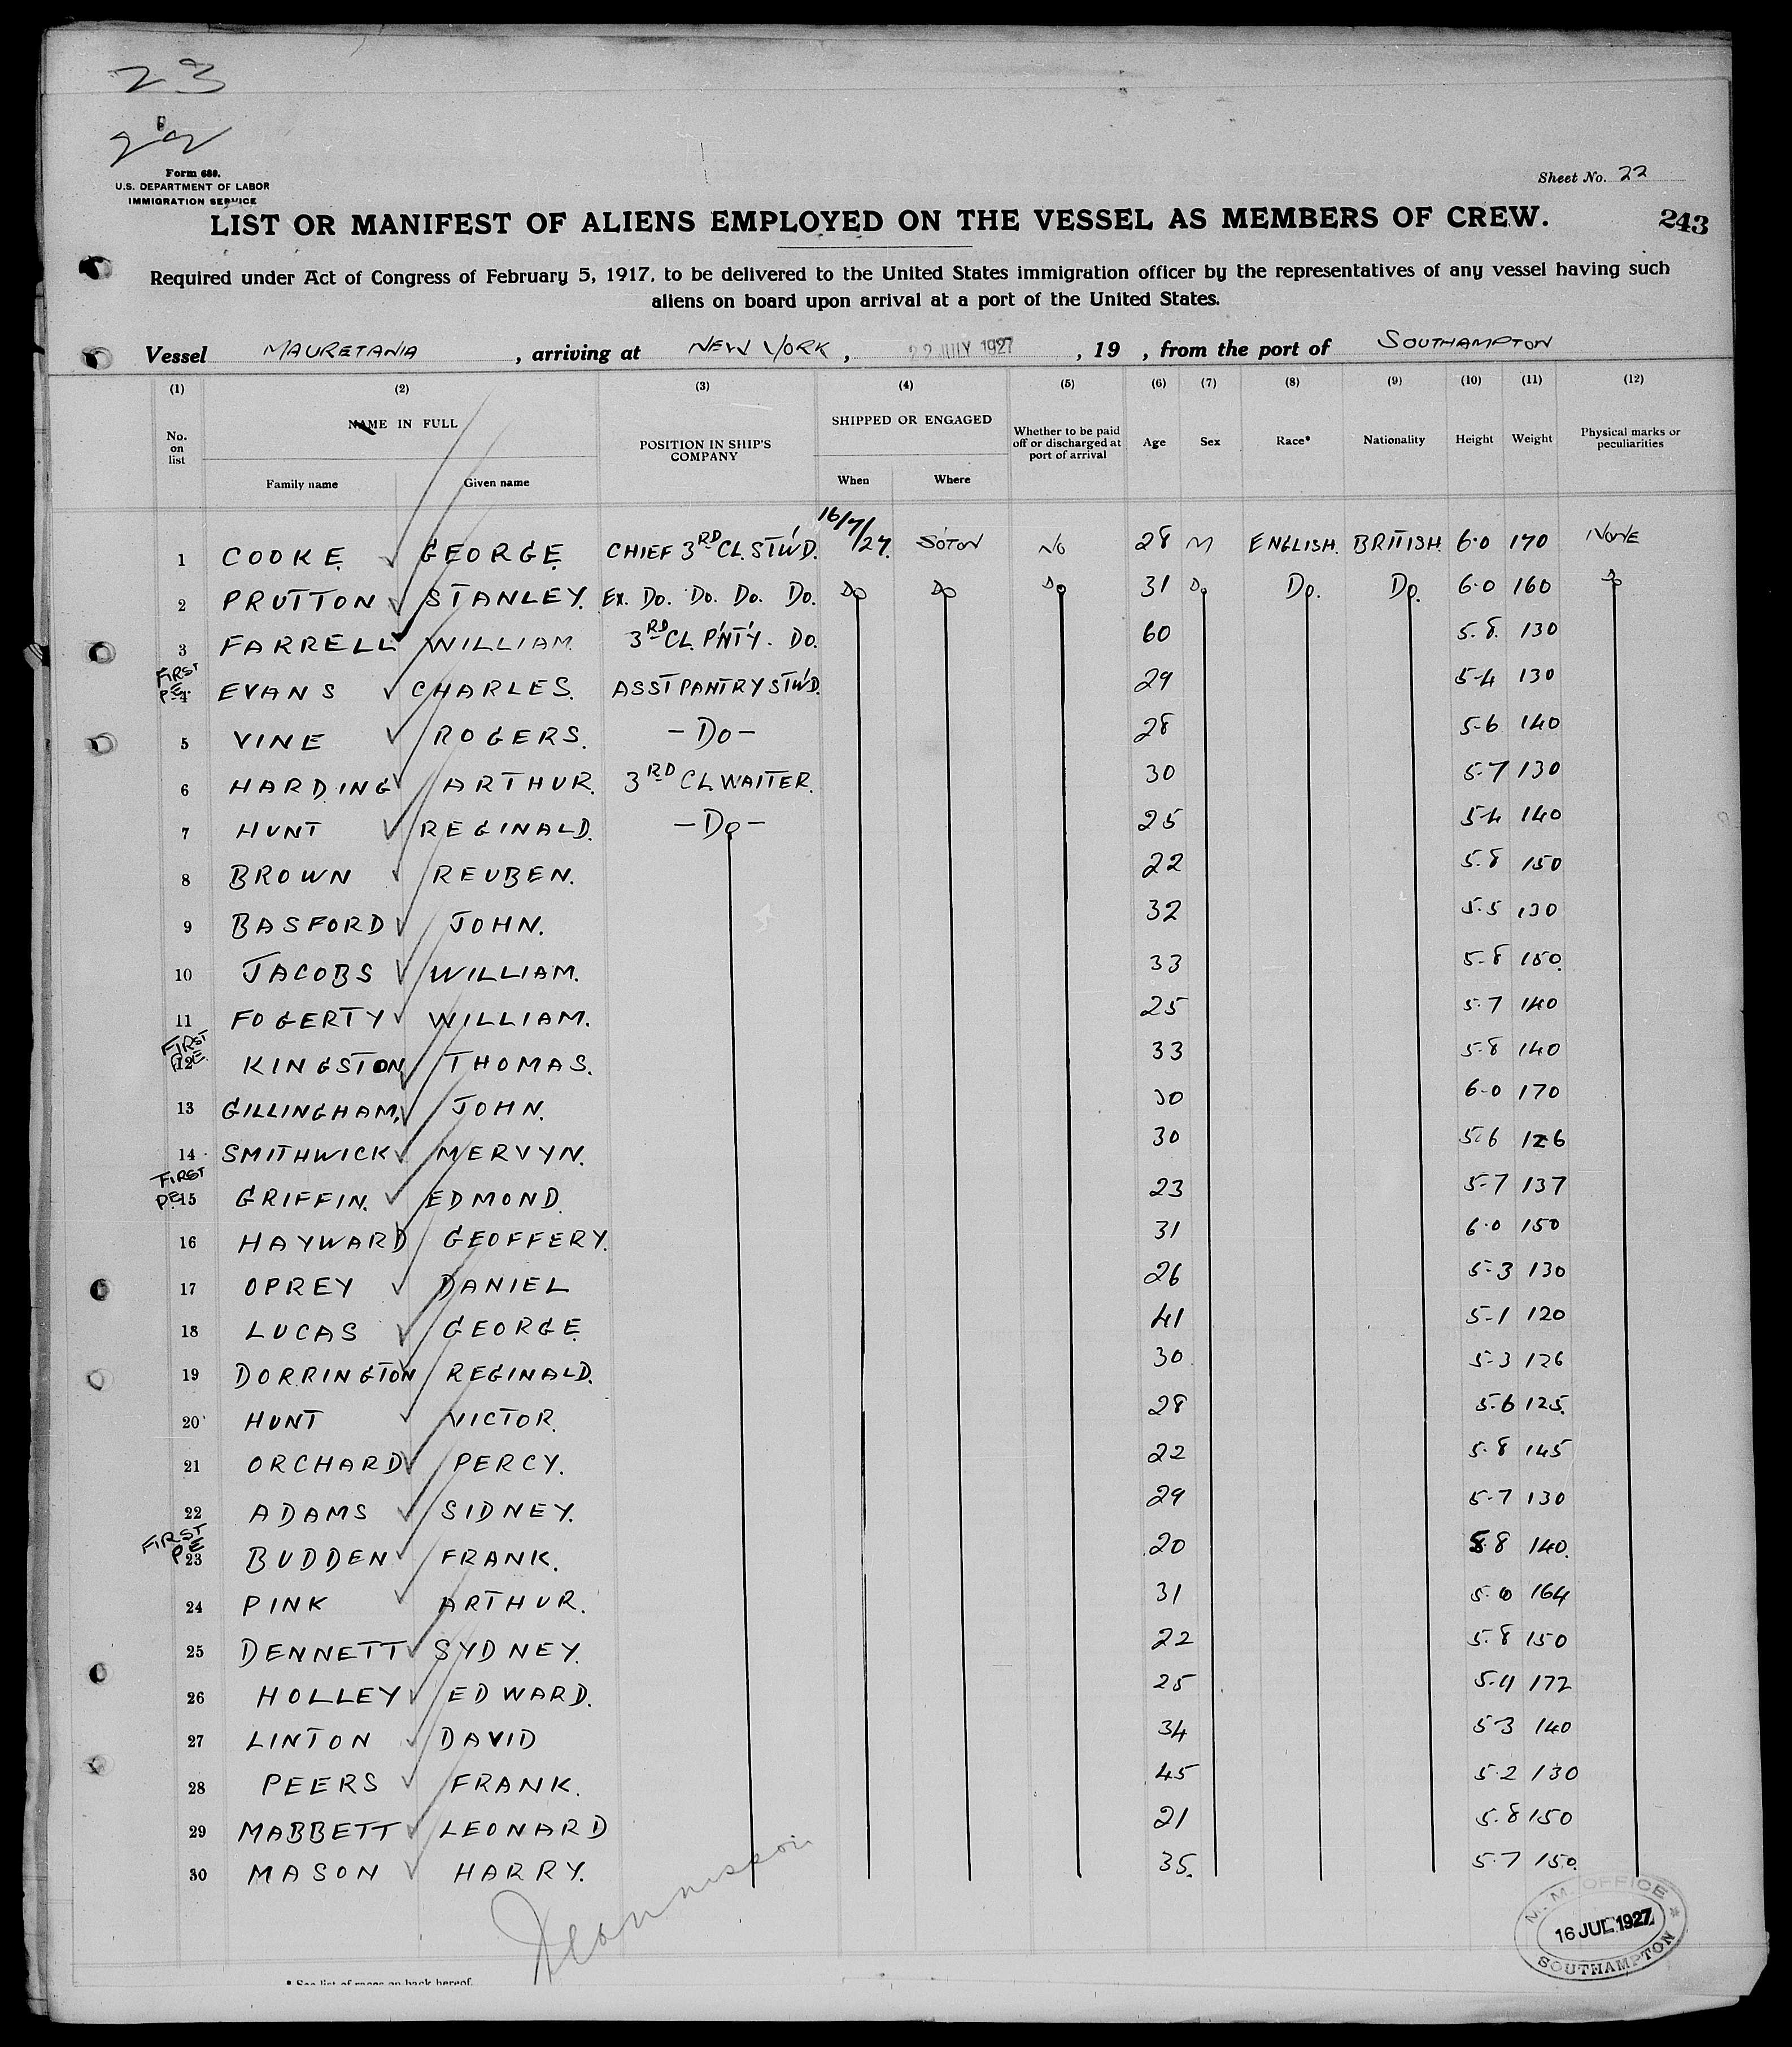 23
22
Form 680.
U.S. DEPARTMENT OF LABOR
IMMIGRATION SERVICE
Sheet No. 22
LIST OR MANIFEST OF ALIENS EMPLOYED ON THE VESSEL AS MEMBERS OF CREW.
243
Required under Act of Congress of February 5, 1917, to be delivered to the United States immigration officer by the representatives of any vessel having such
aliens on board upon arrival at a port of the United States.
Vessel MAURETANIA, arriving at NEW YORK, 22 JULY 1927, 19 , from the port of SOUTHAMPTON
(1) (2) (3) (4) (5) (6) (7) (8) (9) (10) (11) (12)
No. on list NAME IN FULL Family name Given name POSITION IN SHIP'S COMPANY SHIPPED OR ENGAGED When Where Whether to be paid off or discharged at port of arrival Age Sex Race* Nationality Height Weight Physical marks or peculiarities
1 COOKE GEORGE CHIEF 3RD CL. STW'D. 16/7/27. S'OTON NO 28 M ENGLISH. BRITISH. 6.0 170 NONE
2 PRUTTON STANLEY. EX. DO. DO. DO. DO. DO DO DO 31 DO. DO. DO. 6.0 160 DO
3 FARRELL WILLIAM 3RD CL. P'NT'Y. DO. 60 5.8. 130
FIRST P.E. 4 EVANS CHARLES. ASST PANTRY STW'D. 29 5-4 130
5 VINE ROGERS. - DO - 28 5-6 140
6 HARDING ARTHUR. 3RD CL. WAITER. 30 5-7 130
7 HUNT REGINALD. - DO - 25 5-4 140
8 BROWN REUBEN. 22 5.8 150
9 BASFORD JOHN. 32 5.5 130
10 JACOBS WILLIAM. 33 5-8 150.
11 FOGERTY WILLIAM. 25 5.7 140
FIRST P.E. 12 KINGSTON THOMAS. 33 5.8 140
13 GILLINGHAM. JOHN. 30 6-0 170
14 SMITHWICK MERVYN. 30 5.6 126
FIRST P.E. 15 GRIFFIN. EDMOND. 23 5-7 137
16 HAYWARD GEOFFERY. 31 6.0 150
17 OPREY DANIEL 26 5-3 130
18 LUCAS GEORGE. 41 5-1 120
19 DORRINGTON REGINALD. 30 5-3 126
20 HUNT VICTOR. 28 5.6 125.
21 ORCHARD PERCY. 22 5.8 145
22 ADAMS SIDNEY. 29 5-7 130
FIRST P.E 23 BUDDEN FRANK. 20 5.8 140.
24 PINK ARTHUR. 31 164
25 DENNETT SYDNEY. 22 5.8 150
26 HOLLEY EDWARD. 25 172
27 LINTON DAVID 34 5-3 140
28 PEERS FRANK. 45 5.2 130
29 MABBETT LEONARD 21 5.8 150
30 MASON HARRY. 35. 5.7 150.
M. M. OFFICE
16 JUL 1927
SOUTHAMPTON
* See list of races on back hereof.